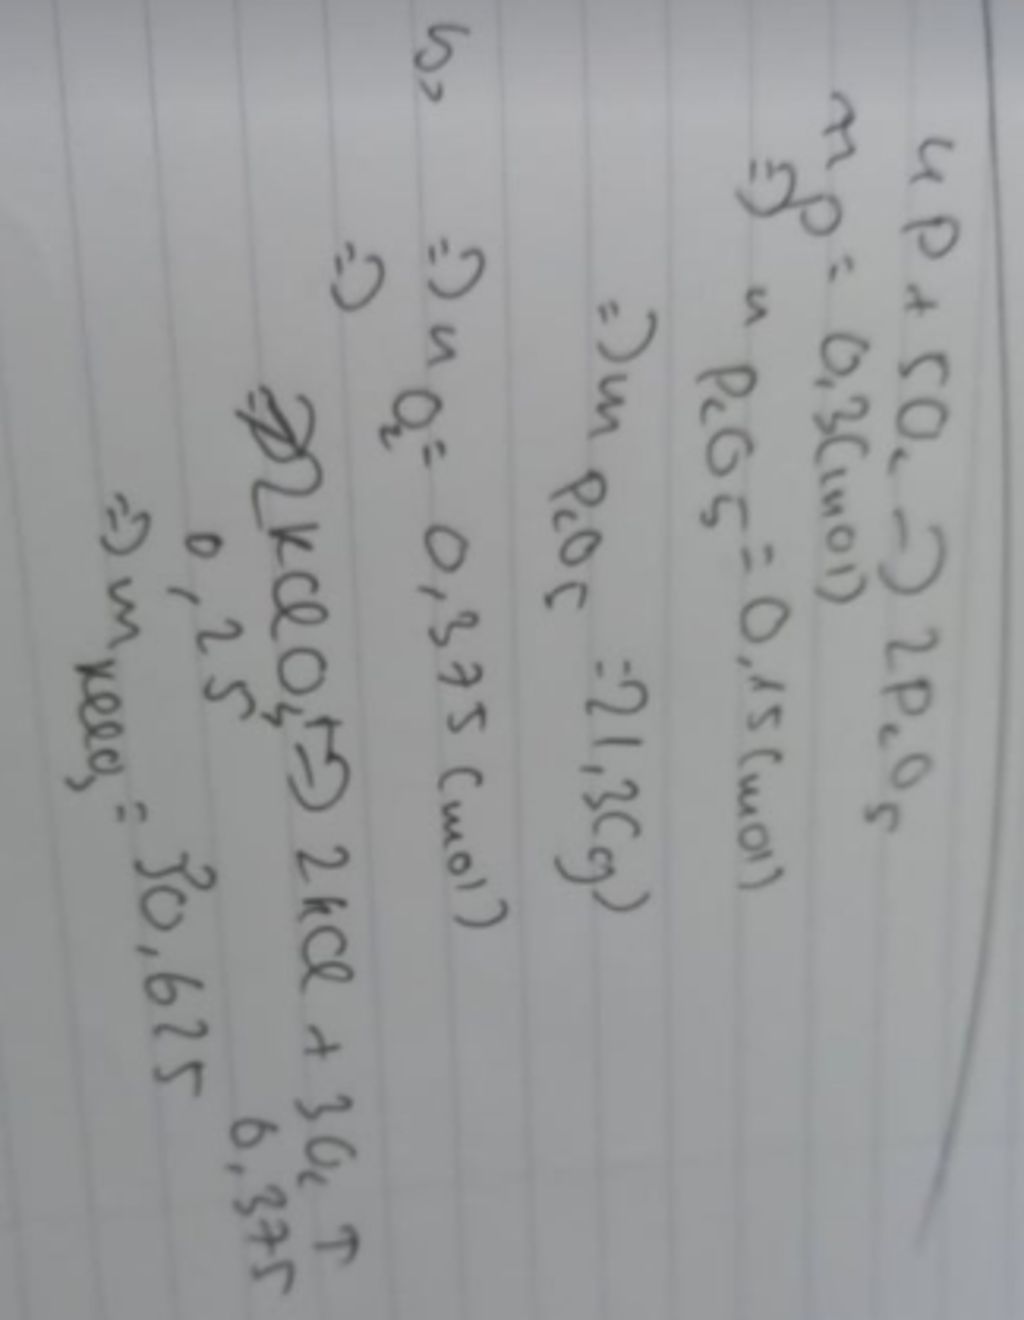 4P + 5O₂ → 2P₂O₅
nP = 0,3(mol)
=> n P₂O₅ = 0,15(mol)
=> m P₂O₅ = 21,3(g)
b, => n O₂ = 0,375(mol)
=>
2KClO₃ → 2KCl + 3O₂ ↑
0,25 0,375
=> m KClO₃ = 30,625